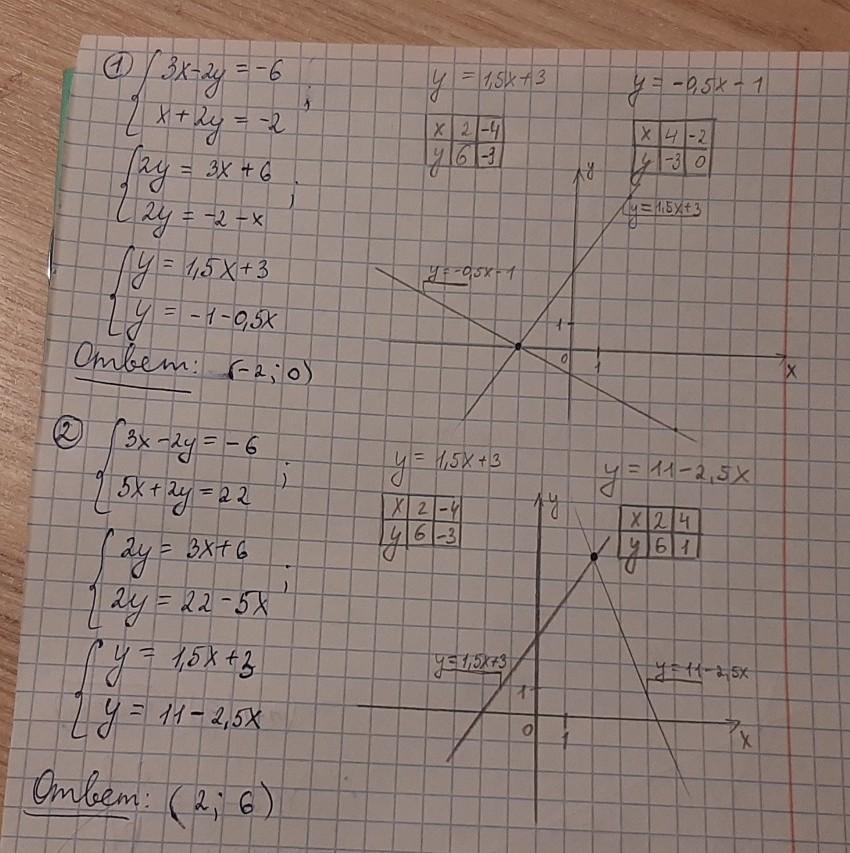 1 { 3x-2y = -6
x + 2y = -2 ;
{ 2y = 3x + 6
2y = -2 - x ;
{ y = 1,5x+3
y = -1-0,5x
Ответ: (-2; 0)
y = 1,5x+3
x 2 -4
y 6 -3
y = -0,5x-1
x 4 -2
y -3 0
y
y=1,5x+3
y=-0,5x-1
1
0 1
x
2 { 3x-2y = -6
5x+2y = 22 ;
{ 2y = 3x+6
2y = 22-5x ;
{ y = 1,5x+3
y = 11-2,5x
Ответ: (2; 6)
y = 1,5x+3
x 2 -4
y 6 -3
y = 11-2,5x
x 2 4
y 6 1
y
y=1,5x+3
y=11-2,5x
1
0 1
x